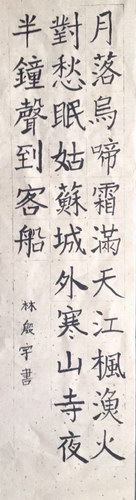 月落烏啼霜滿天江楓漁火
對愁眠姑蘇城外寒山寺夜
半鐘聲到客船
林宸宇書